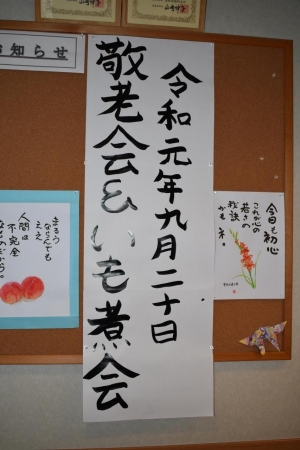 お知らせ
令和元年九月二十日
敬老会&いも煮会
今日も初心
これが心の
若さの
秘訣
かもネ
まるう
ならんでも
ええ
人間は
不完全
なものだから。